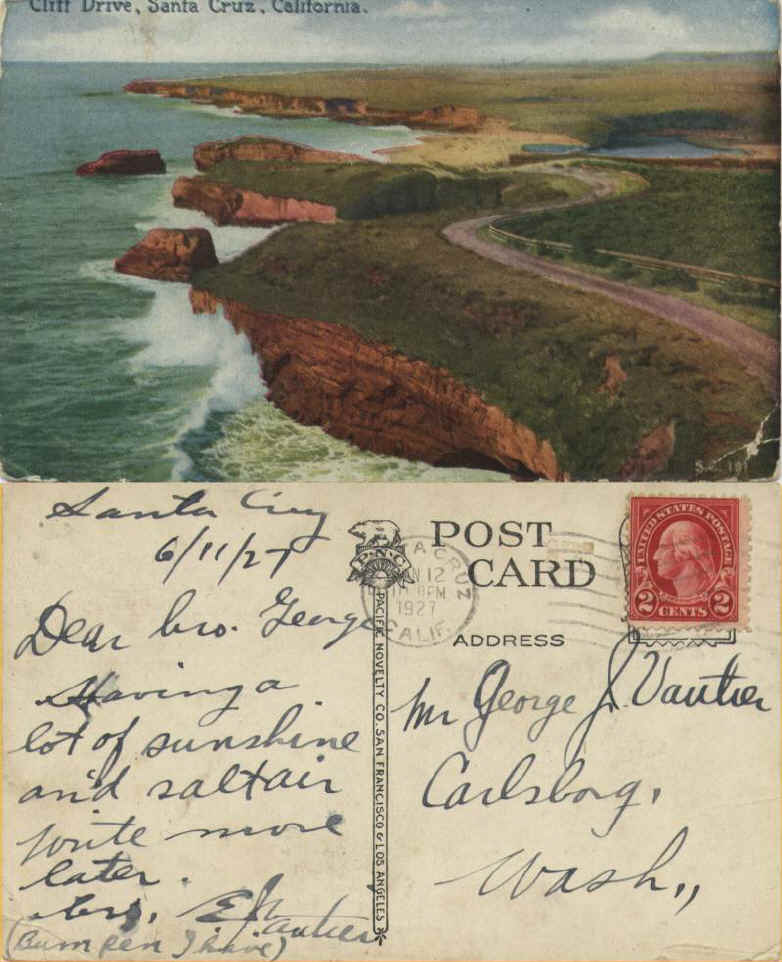 Cliff Drive, Santa Cruz, California.
Santa Cruz
6/11/27
Dear bro. George
Having a
lot of sunshine
and salt air
write more
later.
Bro. E J Vautier
(Bum pen I have)
P-N-C
PACIFIC NOVELTY CO. SAN FRANCISCO & LOS ANGELES
POST
CARD
ADDRESS
SANTA CRUZ
JUN 12
8 PM
1927
CALIF.
UNITED STATES POSTAGE
2 CENTS 2
Mr George J. Vautier
Carlsborg,
Wash.,